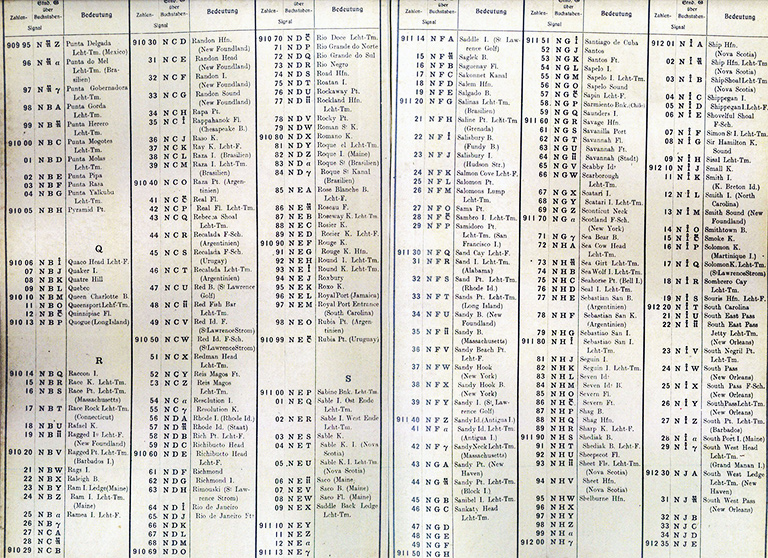 Zahlen- Buchstaben- Bedeutung
Signal
909 95 Punta Delgada
Leht-Tm. (Mexico)
96 Punta do Mel
Leht-Tm. (Bra-
silien)
97 Punta Gobernadora
Leht-Tm.
98 NBA Punta Gorda
Leht-Tm.
99 Punta Herero
Leht-Tm.
910 00 NBC Punta Mogotes
Leht-Tm.
01 NBD Punta Molas
Leht-Tm.
02 NBE Punta Pipa
03 NBF Punta Rasa
04 NBG Punta Yalkubu
Leht-Tm.
910 05 NBH Pyramid Pt.
Q
910 06 Quaco Head Lcht-F.
07 NBJ Quaker I.
08 NBK Quatre Hill
09 NBL Quebec
910 10 NBM Queen Charlotte B.
11 NBO Queensport Leht-F.
12 Quinnipiac Fl.
910 13 NBP Quogue (Long Island)
R
910 14 NBQ Raccoon I.
15 NBR Race K. Leht-Tm.
16 NBS Race Pt. Leht-Tm.
(Massachusetts)
17 NBT Race Rock Leht-Tm.
(Connecticut)
18 NBU Rafael K.
19 Ragged Is Leht-F.
(New Foundland)
910 20 NBV Ragged Pt. Leht-Tm.
(Barbados I.)
21 NBW Rags I.
22 NBX Raleigh B.
23 NBY Ram I. Ledge (Maine)
24 NBZ Ram I. Leht-Tm.
(Maine)
25 Ramea I. Leht-F.
26
27 NCA
28
910 29 NCB
Zahlen- Buchstaben- Bedeutung
Signal
910 30 NCD Random Hfn.
(New Foundland)
31 NCE Random Head
(New Foundland)
32 NCF Random I.
(New Foundland)
33 NCG Random Sound
(New Foundland)
34 NCH Rapa Pt.
35 Rappahanok Fl.
(Cheapeake B.)
36 NCJ Raso K.
37 NCK Ray K. Leht-F.
38 NCL Raza I. (Brasilien)
39 NCM Raza I. Leht-Tm.
(Brasilien)
910 40 NCO Raza Pt. (Argen-
tinien)
41 Real Fl.
42 NCP Real Fl. Leht-Tm.
43 NCQ Rebecca Shoal
Leht-Tm.
44 NCR Recalada F-Sch.
(Argentinien)
45 NCS Recalada F-Sch.
(Uruguay)
46 NCT Recalada Leht-Tm.
(Argentinien)
47 NCU Red B. (St Lawrence
Golf)
48 Red Fish Bar
Leht-Tm.
49 NCV Red Id. F.
(St Lawrence Strom)
910 50 NCW Red Id. F-Sch.
(St Lawrence Strom)
51 NCX Redman Head
Leht-Tm.
52 NCY Reis Magos Ft.
53 NCZ Reis Magos
Leht-Tm.
54 Resolution I.
55 Resolution K.
56 NDA Rhode I. (Rhode Id.)
57 Rhode Id. (Staat)
58 NDB Rich Pt. Leht-F.
59 NDC Richibucto
910 60 NDE Richibucto Head
Leht-F.
61 NDF Richmond
62 NDG Richmond I.
63 NDH Rimouski (St Law-
rence Strom)
64 Rio de Janeiro
65 NDJ Rio de Janeiro Ft
66 NDK
67 NDL
68 NDM
910 69 NDO
Zahlen- Buchstaben- Bedeutung
Signal
910 70 Rio Doce Leht-Tm.
71 NDP Rio Grande do Norte
72 NDQ Rio Grande do Sul
73 NDR Rio Negro
74 NDS Road Hfn.
75 NDT Roatan I.
76 NDU Rockaway Pt.
77 Rockland Hfn.
Leht-Tm.
78 NDV Rocky Pt.
79 NDW Roman St K.
910 80 NDX Romano K.
81 NDY Roque el Leht-Tm.
82 NDZ Roque I. (Maine)
83 Roque St (Brasilien)
84 Roque St Kanal
(Brasilien)
85 NEA Rose Blanche B.
Leht-F.
86 Roseau F.
87 NEB Roseway K. Leht-Tm.
88 NEC Rosier K.
89 NED Rosier K. Leht-F.
910 90 NEF Rouge K.
91 NEG Rouge K. Hfn.
92 NEH Round I. Leht-Tm.
93 Round K. Leht-Tm.
94 NEJ Roxbury
95 NEK Roxo K.
96 NEL Royal Port (Jamaica)
97 NEM Royal Port Entrance
(South Carolina)
98 NEO Rubia Pt. (Argen-
tinien)
910 99 Rubia Pt. (Uruguay)
S
911 00 NEP Sabine Bnk. Leht-Tm.
01 NEQ Sable I. Ost Ende
Leht-Tm.
02 NER Sable I. West Ende
Leht-Tm.
03 NES Sable K.
04 NET Sable K. I. (Nova
Scotia)
05 NEU Sable K. I. Leht-Tm.
(Nova Scotia)
06 Saco (Maine)
07 NEV Saco B. (Maine)
08 NEW Saco Fl. (Maine)
09 NEX Saddle Back Ledge
Leht-Tm.
911 10 NEY
11 NEZ
12
911 13
Zahlen- Buchstaben- Bedeutung
Signal
911 14 NFA Saddle I. (St Law-
rence Golf)
15 Saglek B.
16 NFB Saguenay Fl.
17 NFC Sakonnet Kanal
18 NFD Salem Hfn.
19 NFE Salgado B.
911 20 NFG Salinas Leht-Tm.
(Brasilien)
21 NFH Saline Pt. Leht-Tm.
(Grenada)
22 Salisbury B.
(Fundy B.)
23 NFJ Salisbury I.
(Hudson Str.)
24 NFK Salmon Cove Leht-F.
25 NFL Salomon Pt.
26 NFM Salomons Lump
Leht-Tm.
27 NFO Sama Pt.
28 Sambro I. Leht-Tm.
29 NFP Samidoro Pt.
Leht-Tm. (San
Francisco I.)
911 30 NFQ Sand Cay Leht-F.
31 NFR Sand I. Leht-Tm.
(Alabama)
32 NFS Sand Pt. Leht-Tm.
(Rhode Id.)
33 NFT Sands Pt. Leht-Tm.
(Long Island)
34 NFU Sandy B. (New
Foundland)
35 Sandy B.
(Massachusetts)
36 NFV Sandy Beach Pt.
Leht-F.
37 NFW Sandy Hook
(New York)
38 NFX Sandy Hook B.
(New York)
39 NFY Sandy I. (St Law-
rence Golf)
911 40 NFZ Sandy Id. (Antigua I.)
41 Sandy Id. Leht-Tm.
(Antigua I.)
42 Sandy Neck Leht-Tm.
(Massachusetts)
43 NGA Sandy Pt. (New
Haven)
44 Sandy Pt. Leht-Tm.
(Block I.)
45 NGB Sanibel I. Leht-Tm.
46 NGC Sankaty Head
Leht-Tm.
47 NGD
48 NGE
49 NGF
911 50 NGH
Zahlen- Buchstaben- Bedeutung
Signal
911 51 Santiago de Cuba
52 NGJ Santos
53 NGK Santos Ft.
54 NGL Sapelo I.
55 NGM Sapelo I. Leht-Tm.
56 NGO Sapelo Sound
57 Sapin Leht-F.
58 NGP Sarmiento Bnk. (Chile)
59 NGQ Saunders I.
911 60 NGR Savage Hfn.
61 NGS Savanilla Port
62 NGT Savannah Fl.
63 NGU Savannah Ft.
64 Savannah (Stadt)
65 NGV Seabby Id.
66 NGW Scarborough
Leht-Tm.
67 NGX Scatari I.
68 NGY Scatari I. Leht-Tm.
69 NGZ Sconticut Neck
911 70 Scotland F-Sch.
(New York)
71 Sea Bear B.
72 NHA Sea Cow Head
Leht-Tm.
73 Sea Girt Leht-Tm.
74 NHB Sea Wolf I. Leht-Tm.
75 NHC Seahorse Pt. (Bell I.)
76 NHD Seal I. Leht-Tm.
77 NHE Sebastian San B.
(Argentinien)
78 NHF Sebastian San K.
(Argentinien)
79 NHG Sebastiao San I.
911 80 Sebastiao San I.
Leht-Tm.
81 NHJ Seguin I.
82 NHK Seguin I. Leht-Tm.
83 NHL Seven Ids
84 NHM Seven Ids B.
85 NHO Severn Fl.
86 Severn Ft.
87 NHP Shag B.
88 NHQ Shag Hfn.
89 NHR Sharp K. Leht-F.
911 90 NHS Shediak B.
91 NHT Shediak B. Leht-F.
92 NHU Sheepscot Fl.
93 Sheet Fls. Leht-Tm.
(Nova Scotia)
94 NHV Sheet Hfn.
(Nova Scotia)
95 NHW Shelburne Hfn.
96 NHX
97 NHY
98 NHZ
99
912 00
Zahlen- Buchstaben- Bedeutung
Signal
912 01 Ship Hfn.
(Nova Scotia)
02 Ship Hfn. Leht-Tm.
(Nova Scotia)
03 Ship Shoal Leht-Tm.
(Nova Scotia)
04 Shippegan I.
05 Shippegan I. Leht-F.
06 Shovelful Shoal
F-Sch.
07 Simon St I. Leht-Tm.
08 Sir Hamilton K.
Sound
09 Sisal Leht-Tm.
912 10 Small K.
11 Smith I.
(K. Breton Id.)
12 Smith I. (North
Carolina)
13 Smith Sound (New
Foundland)
14 Smithtown B.
15 Smoke K.
16 Solomon K.
(Martinique I.)
17 Solomon K. Leht-Tm.
(St Lawrence Strom)
18 Sombrero Cay
Leht-Tm.
19 Souris Hfn. Leht-F.
912 20 South Carolina
21 South East Pass
22 South East Pass
Jetty Leht-Tm.
(New Orleans)
23 South Negril Pt.
Leht-Tm.
24 South Pass
(New Orleans)
25 South Pass F-Sch.
(New Orleans)
26 South Pass Leht-Tm.
(New Orleans)
27 South Pt. Leht-Tm.
(Barbados)
28 South Port I. (Maine)
29 South West Head
Leht-Tm.
(Grand Manan I.)
912 30 NJA South West Ledge
Leht-Tm. (New
Haven)
31 South West Pass
(New Orleans)
32 NJB
33 NJC
34 NJD
912 35 NJE